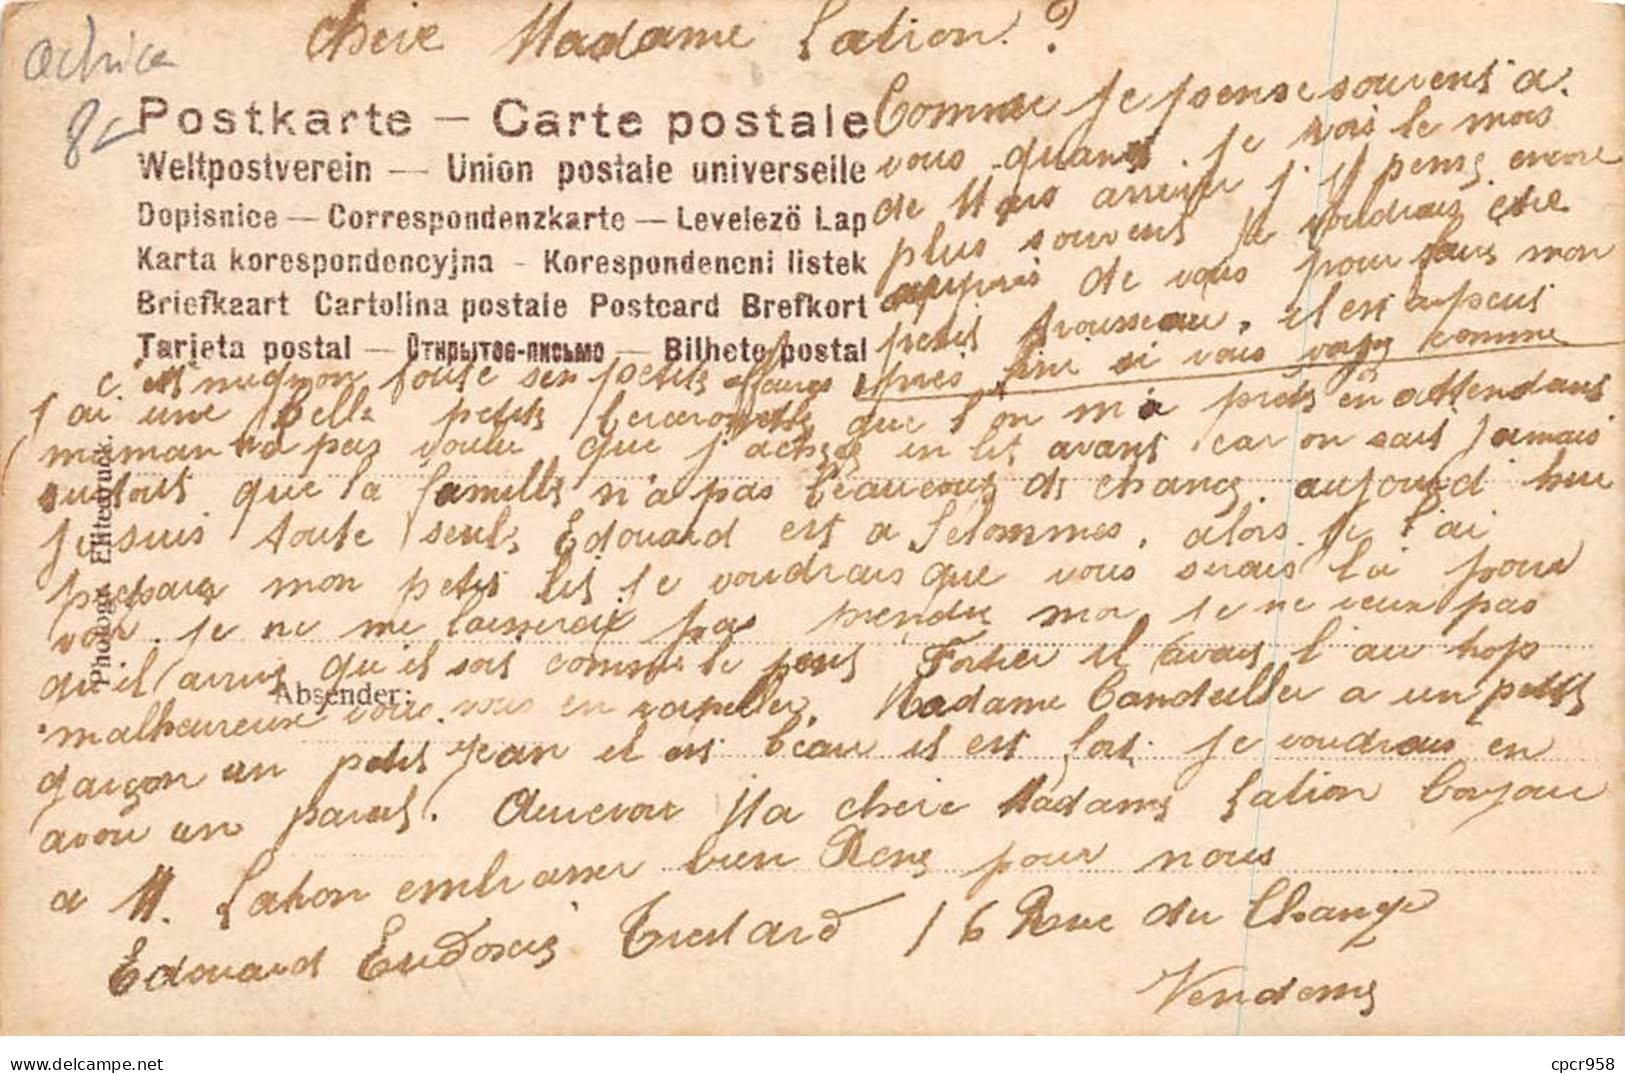 Chere Madame Lation ?
Actrice
8c
Postkarte – Carte postale
Weltpostverein — Union postale universelle
Dopisnice — Correspondenzkarte — Levelezö Lap
Karta korespondencyjna - Korespondencni listek
Briefkaart Cartolina postale Postcard Brefkort
Tarjeta postal — Открытое-письмо — Bilhete postal
Comme je pense souvent a.
vous quand. je vois le mois
de Mars arriver j'y pense encore
plus souvent je voudrais etre
auprès de vous pour faire mon
petit trousseau, il est a peut
près fini si vous voyez comme
c'est mignon toute ses petits affaires
j'ai une belle petite berceronette que l'on m'a prêts en attendant
maman n'a pas voulu que j'achete un lit avant car on sait jamais
surtout que la famille n'a pas beaucoup de chance. aujourd hui
je suis toute seule Edouard est a Selommes, alors je l'ai
preparer mon petit lit je voudrais que vous serais la pour
voir. je ne me laisserai pas prendre moi je ne veux pas
qu'il arrive qu'il soit comme le petit Fortier il avait l'air trop
malheureux vous vous en rappeller. Madame Candeiller a un petit
garçon un petit Jean il est beau il est fort. je voudrais en
avoir un pareil. Aurevoir Ma chere Madame Lation Bonjour
a M. Lation embrasser bien René pour nous
Edouard Eudoxie Trestard 16 Rue du Change
Vendome
Photogr. Elitedruck.
Absender:
cpcr958